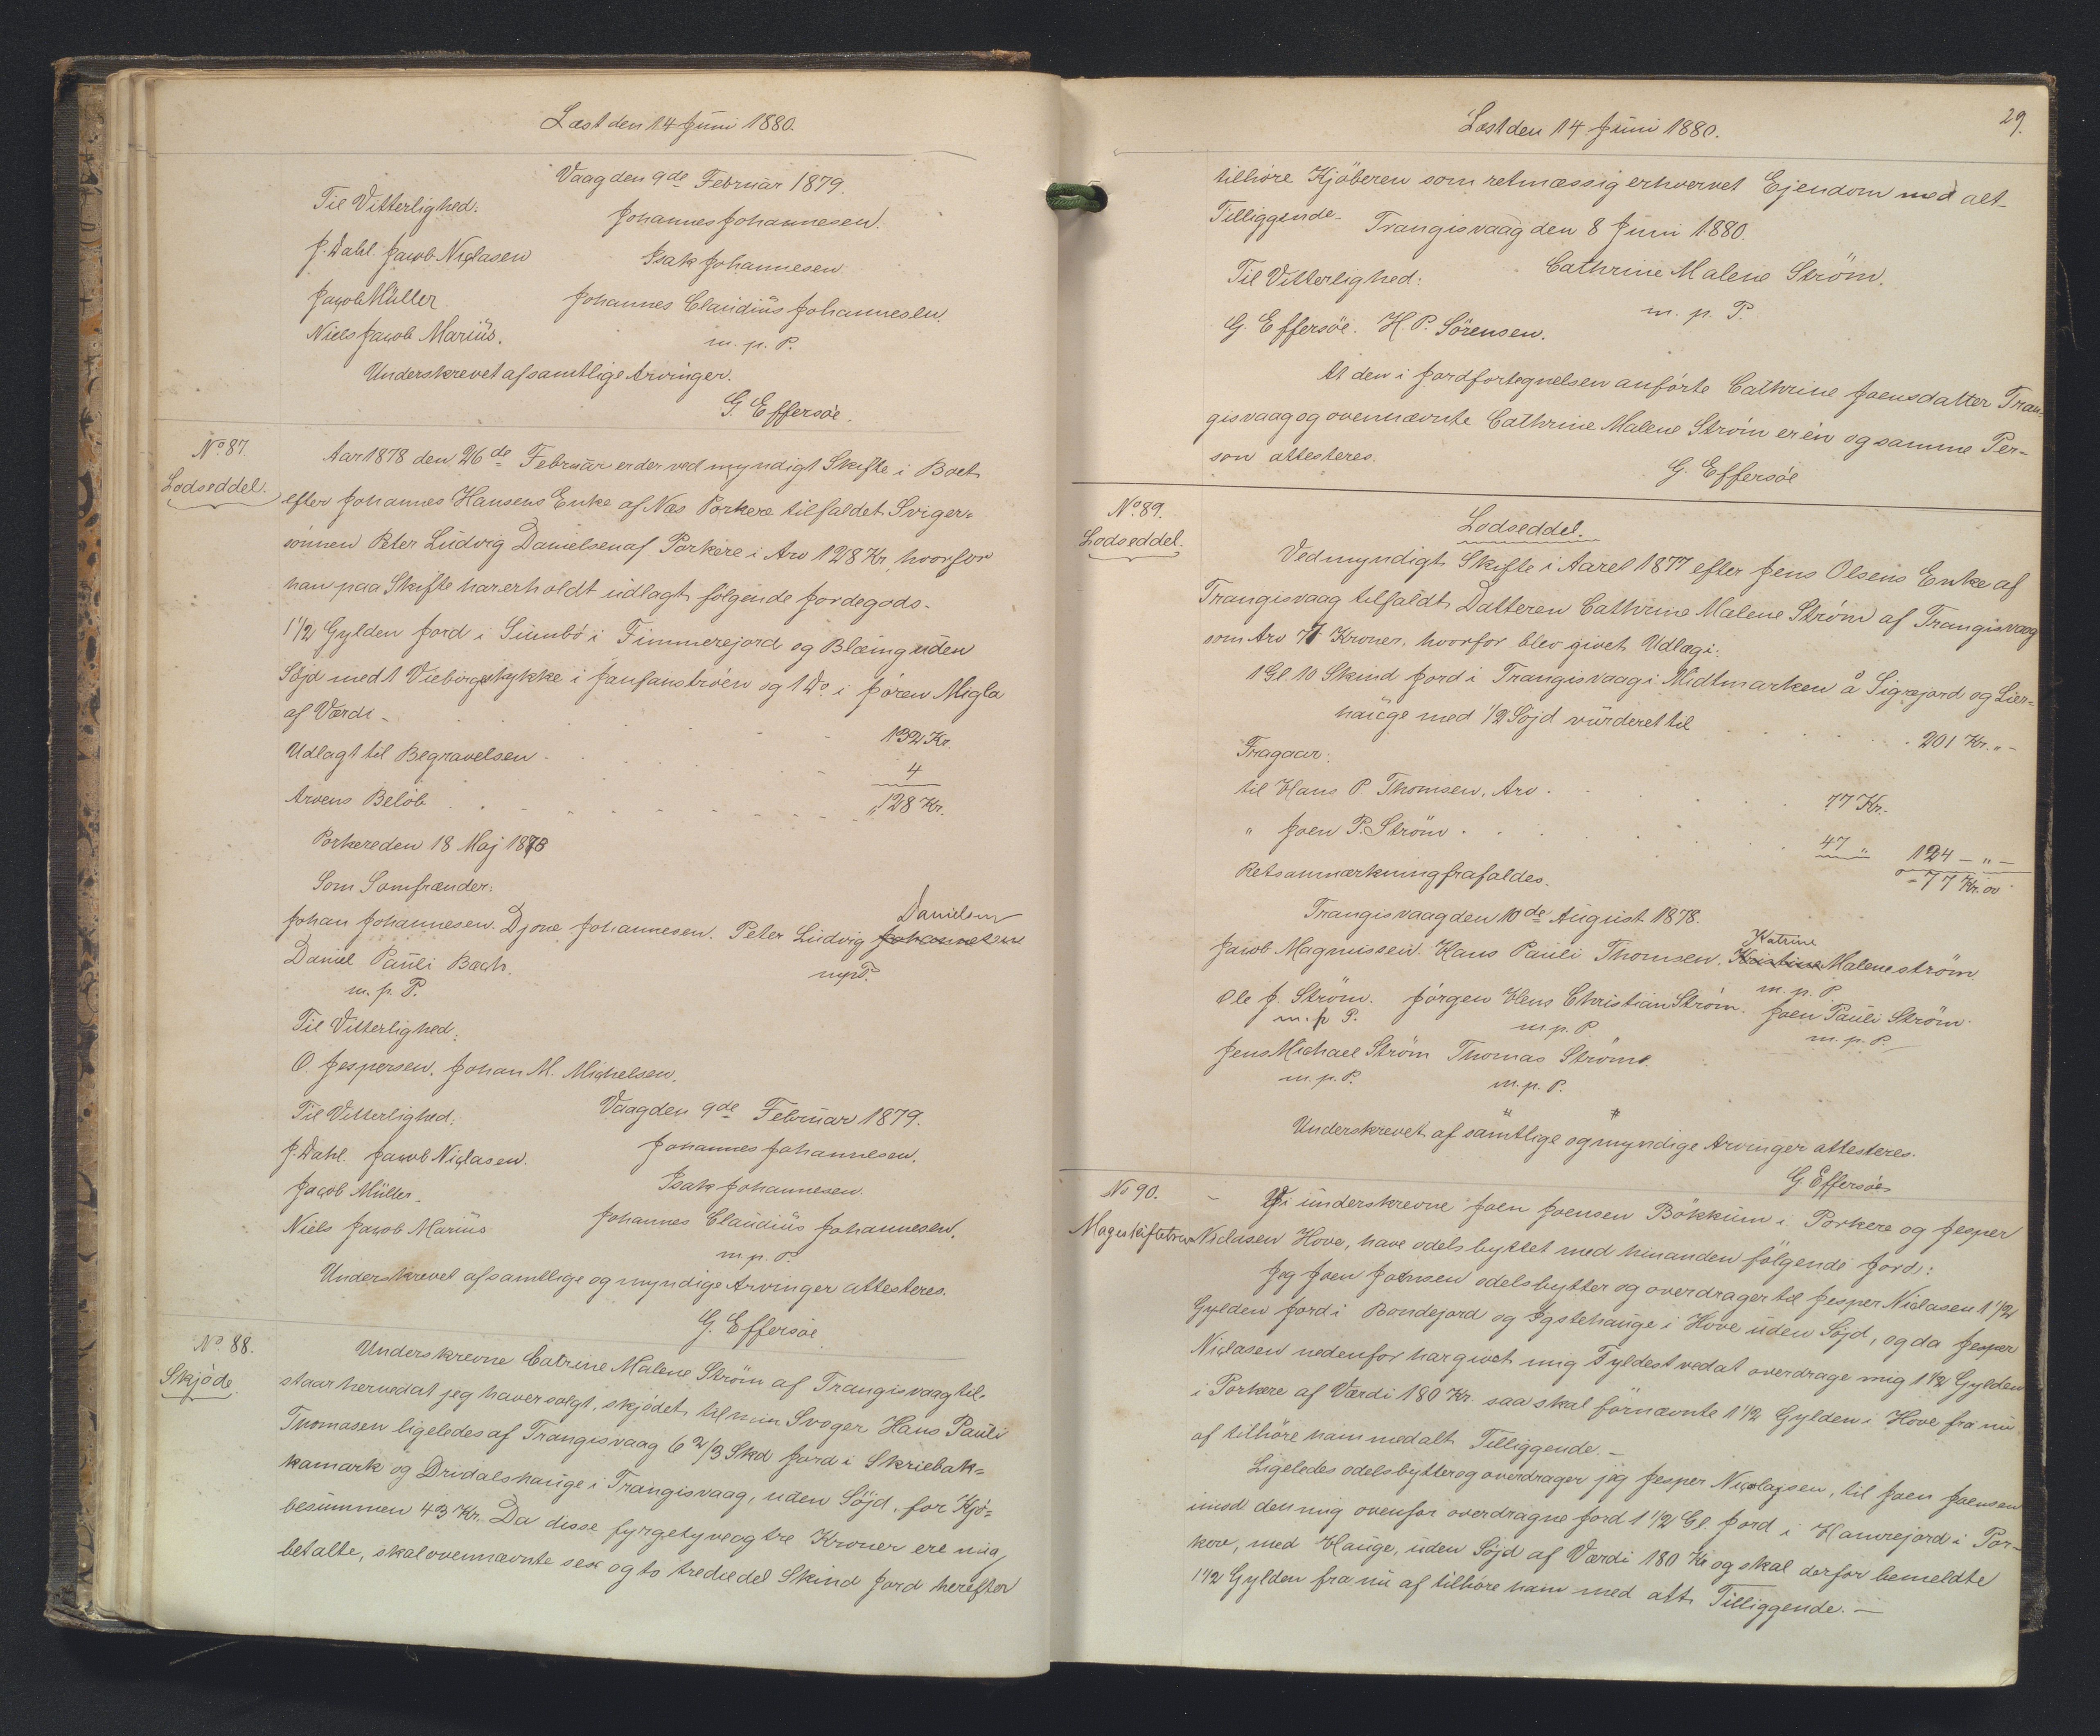 Læst den 14 Juni 1880.
Vaag den 9de Februar 1879.
Til Vitterlighed: Johannes Johannesen.
J. Dahl. Jacob Niclasen Isak Johannesen.
Jacob Müller Johannes Claudius Johannesen.
Niels Jacob Marius. m. p. P.
Underskrevet af samtlige Arvinger.
G. Effersöe.
No 87. Lodseddel.
Aar 1878 den 26de Februar er der ved myndigt Skifte i Boet
efter Johannes Hansens Enke af Næs Porkere tilfaldet Sviger=
sönnen Peter Ludvig Danielsen af Porkere i Arv 128 Kr, hvorfor
han paa Skifte har erholdt udlagt følgende Jordegods.
1 1/2 Gylden Jord i Sumbö i Fimmerejord og Blæing uden
Söjd med 1 stykke i og 1 Do i Migla
af Værdi - 132 Kr.
Udlagt til Begravelsen - 4
Arvens Belöb 128 Kr.
Porkere den 18 Maj 1878
Som Samfrænder:
Danielsen
Johan Johannesen. Djone Johannesen. Peter Ludvig Johannesen
Daniel Pauli Bech. mpP.
m. p. P.
Til Vitterlighed:
O. Jespersen. Johan M. Michelsen.
Til Vitterlighed: Vaag den 9de Februar 1879.
J. Dahl. Jacob Niclasen. Johannes Johannesen.
Jacob Müller. Isak Johannesen.
Niels Jacob Marius Johannes Claudius Johannesen.
m. p. P.
Underskrevet af samtlige og myndige Arvinger attesteres.
G. Effersöe
No 88. Skjöde.
Underskrevne Catrine Malene Ström af Trangisvaag til-
staar herved at jeg haver solgt, skjödet til min Svoger Hans Pauli
Thomasen ligeledes af Trangisvaag 6 2/3 Skd Jord i Skriebak=
kamark og Dridalshauge i Trangisvaag, uden Söjd, for Kjö=
besummen 43 Kr. Da disse fyrgetyve og tre Kroner ere mig
betalte, skal ovennævnte sex og to trediedel Skind Jord herefter
29.
Læst den 14 Juni 1880.
tilhöre Kjöberen som retmæssig erhvervet Ejendom med alt
Tilliggende. Trangisvaag den 8 Juni 1880.
Til Vitterlighed: Cathrine Malene Ström.
G. Effersöe. H. P. Sörensen. m. p. P.
At den i Jordfortegnelsen anförte Cathrine Joensdatter Tran-
gisvaag og ovennævnte Cathrine Malene Ström er én og samme Per-
son attesteres.
G. Effersöe
No 89. Lodseddel.
Lodseddel.
Ved myndigt Skifte i Aaret 1877 efter Jens Olsens Enke af
Trangisvaag tilfaldt Datteren Cathrine Malene Ström af Trangisvaag
som Arv 77 Kroner, hvorfor blev givet Udlæg i:
1 Gl. 10 Skind Jord i Trangisvaag i Midtmarken å Sigrejord og Lier=
hauge med 1/2 Söjd vurderet til 201 Kr. " -
Fragaar:
til Hans P Thomsen, Arv. 77 Kr.
" Joen P. Ström. 47 " 124 - " -
Retsanmærkning frafaldes. = 77 Kr. ov
Trangisvaag den 10de August 1878.
Katrine
Jacob Magnussen. Hans Pauli Thomsen. Kristine Malene ström
m. p. P.
Ole J. Ström. Jörgen Hens Christian Ström. Joen Pauli Ström.
m. p P. m. p. P m. p. P.
Jens Michael Ström Thomas Ström.
m. p. P. m. p. P.
Underskrevet af samtlige og myndige Arvinger attesteres.
G Effersöe
No 90. Mageskiftebrev
Vi underskrevne Joen Joensen Bökkum i Porkere og Jesper
Niclasen Hove, have odelsbyttet med hinanden fölgende Jord:
Jeg Joen Joensen odelsbytter og overdrager til Jesper Niclasen 1 1/2
Gylden Jord i Bondejord og Igstehauge i Hove uden Söjd, og da Jesper
Niclasen nedenfor har givet mig Fyldest ved at overdrage mig 1 1/2 Gylden
i Porkere af Værdi 180 Kr. saa skal förnævnte 1 1/2 Gylden i Hove fra nu
af tilhöre ham med alt Tilliggende. -
Ligeledes odelsbytter og overdrager jeg Jesper Niclasen, til Joen Joensen
imod den mig ovenfor overdragne Jord 1 1/2 Gl. Jord i Hamrejord i Por-
kere, med Hauge, uden Söjd af Værdi 180 Kr og skal derfor bemeldte
1 1/2 Gylden fra nu af tilhöre ham med alt Tilliggende. -